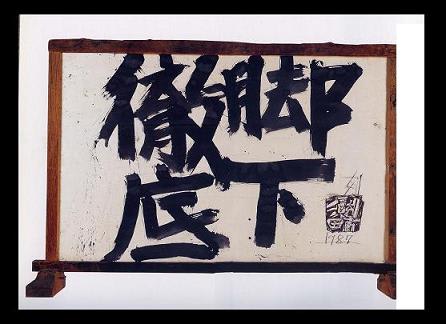 脚下
徹底
1987